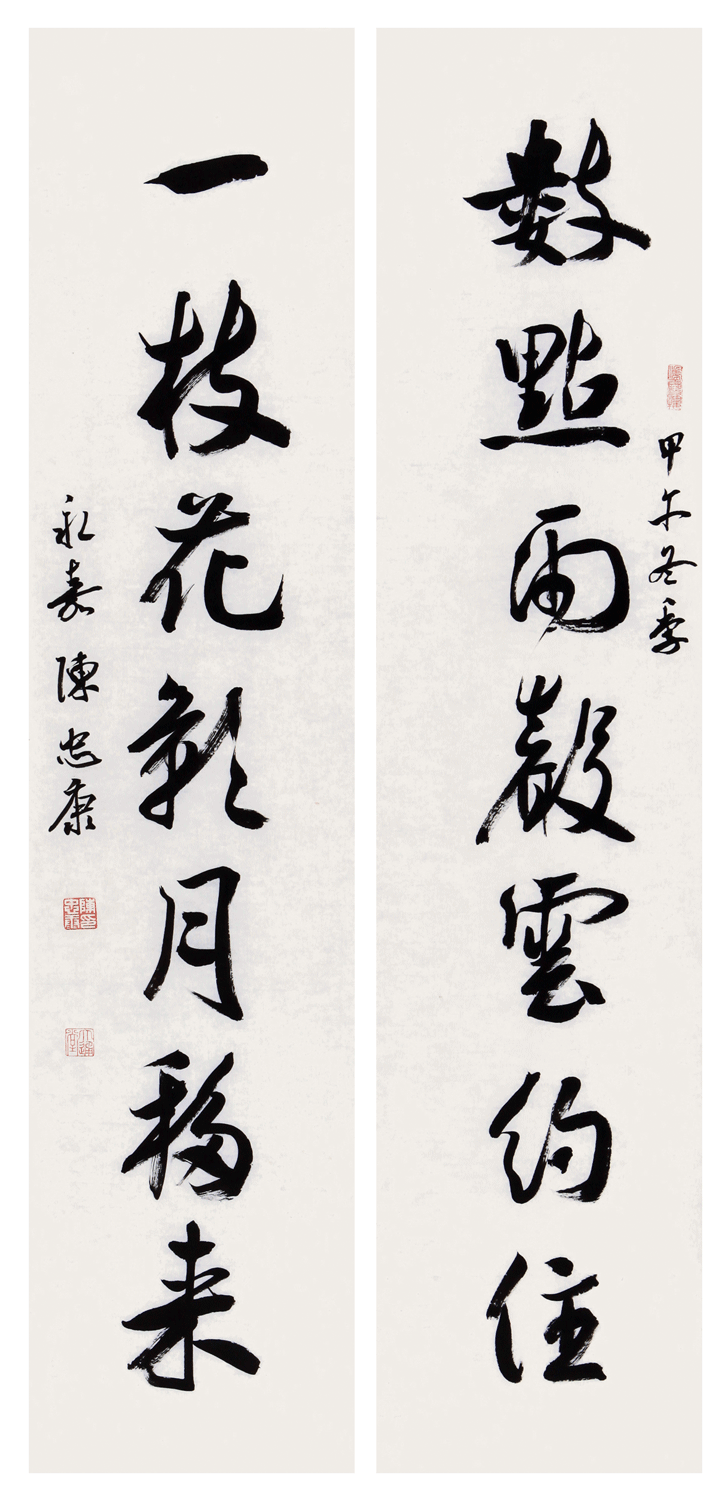 數點雨聲雲約住
甲午冬季
一枝花影月移来
永嘉陳忠康